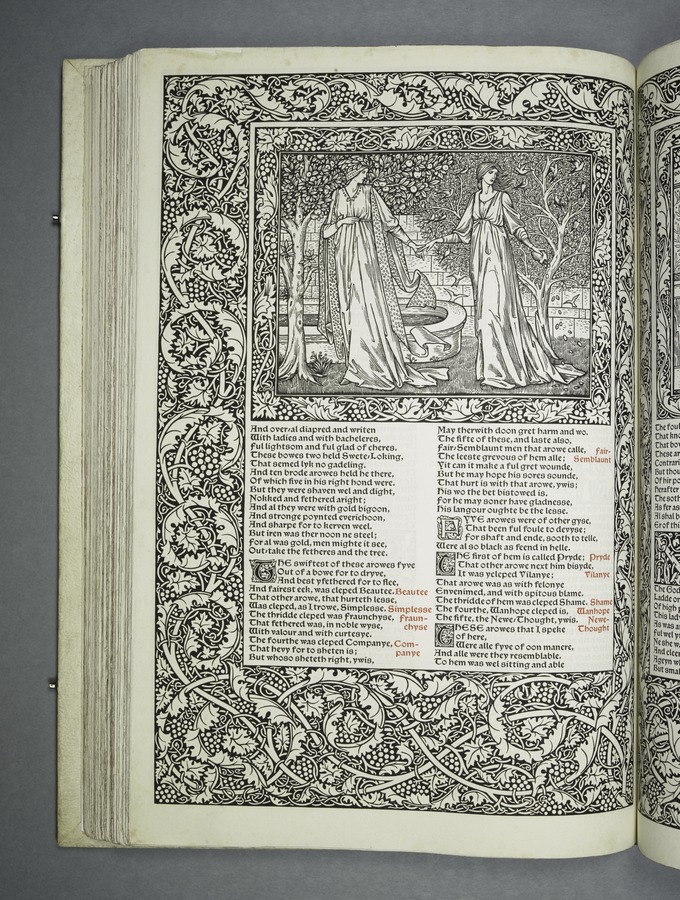 And over-al diapred and writen
With ladies and with bacheleres,
Ful lightsom and ful glad of cheres.
These bowes two held Swete-Loking,
That semed lyk no gadeling.
And ten brode arowes held he there,
Of which five in his right hond were.
But they were shaven wel and dight,
Nokked and fethered aright;
And al they were with gold bigoon,
And stronge poynted everichoon,
And sharpe for to kerven weel.
But iren was ther noon ne steel;
For al was gold, men mighte it see,
Out-take the fetheres and the tree.
THE swiftest of these arowes fyve
Out of a bowe for to dryve,
And best yfethered for to flee,
And fairest eek, was cleped Beautee. Beautee
That other arowe, that hurteth lesse,
Was cleped, as I trowe, Simplesse. Simplesse
The thridde cleped was Fraunchyse, Fraun-
That fethered was, in noble wyse, chyse
With valour and with curtesye.
The fourthe was cleped Companye, Com-
That hevy for to sheten is; panye
But whoso sheteth right, ywis,
May therwith doon gret harm and wo.
The fifte of these, and laste also,
Fair-Semblaunt men that arowe calle, Fair-
The leeste grevous of hem alle; Semblaunt
Yit can it make a ful gret wounde,
But he may hope his sores sounde,
That hurt is with that arowe, ywis;
His wo the bet bistowed is.
For he may soner have gladnesse,
His langour oughte be the lesse.
FYVE arowes were of other gyse,
That been ful foule to devyse;
For shaft and ende, sooth to telle,
Were al so black as feend in helle.
THE first of hem is called Pryde; Pryde
That other arowe next him bisyde,
It was ycleped Vilanye; Vilanye
That arowe was as with felonye
Envenimed, and with spitous blame.
The thridde of hem was cleped Shame. Shame
The fourthe, Wanhope cleped is, Wanhope
The fifte, the Newe-Thought, ywis. Newe-
THESE arowes that I speke Thought
of here,
Were alle fyve of oon manere,
And alle were they resemblable.
To hem was wel sitting and able